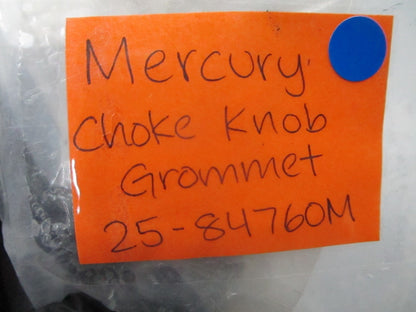 Mercury
Choke Knob
Grommet
25-84760M